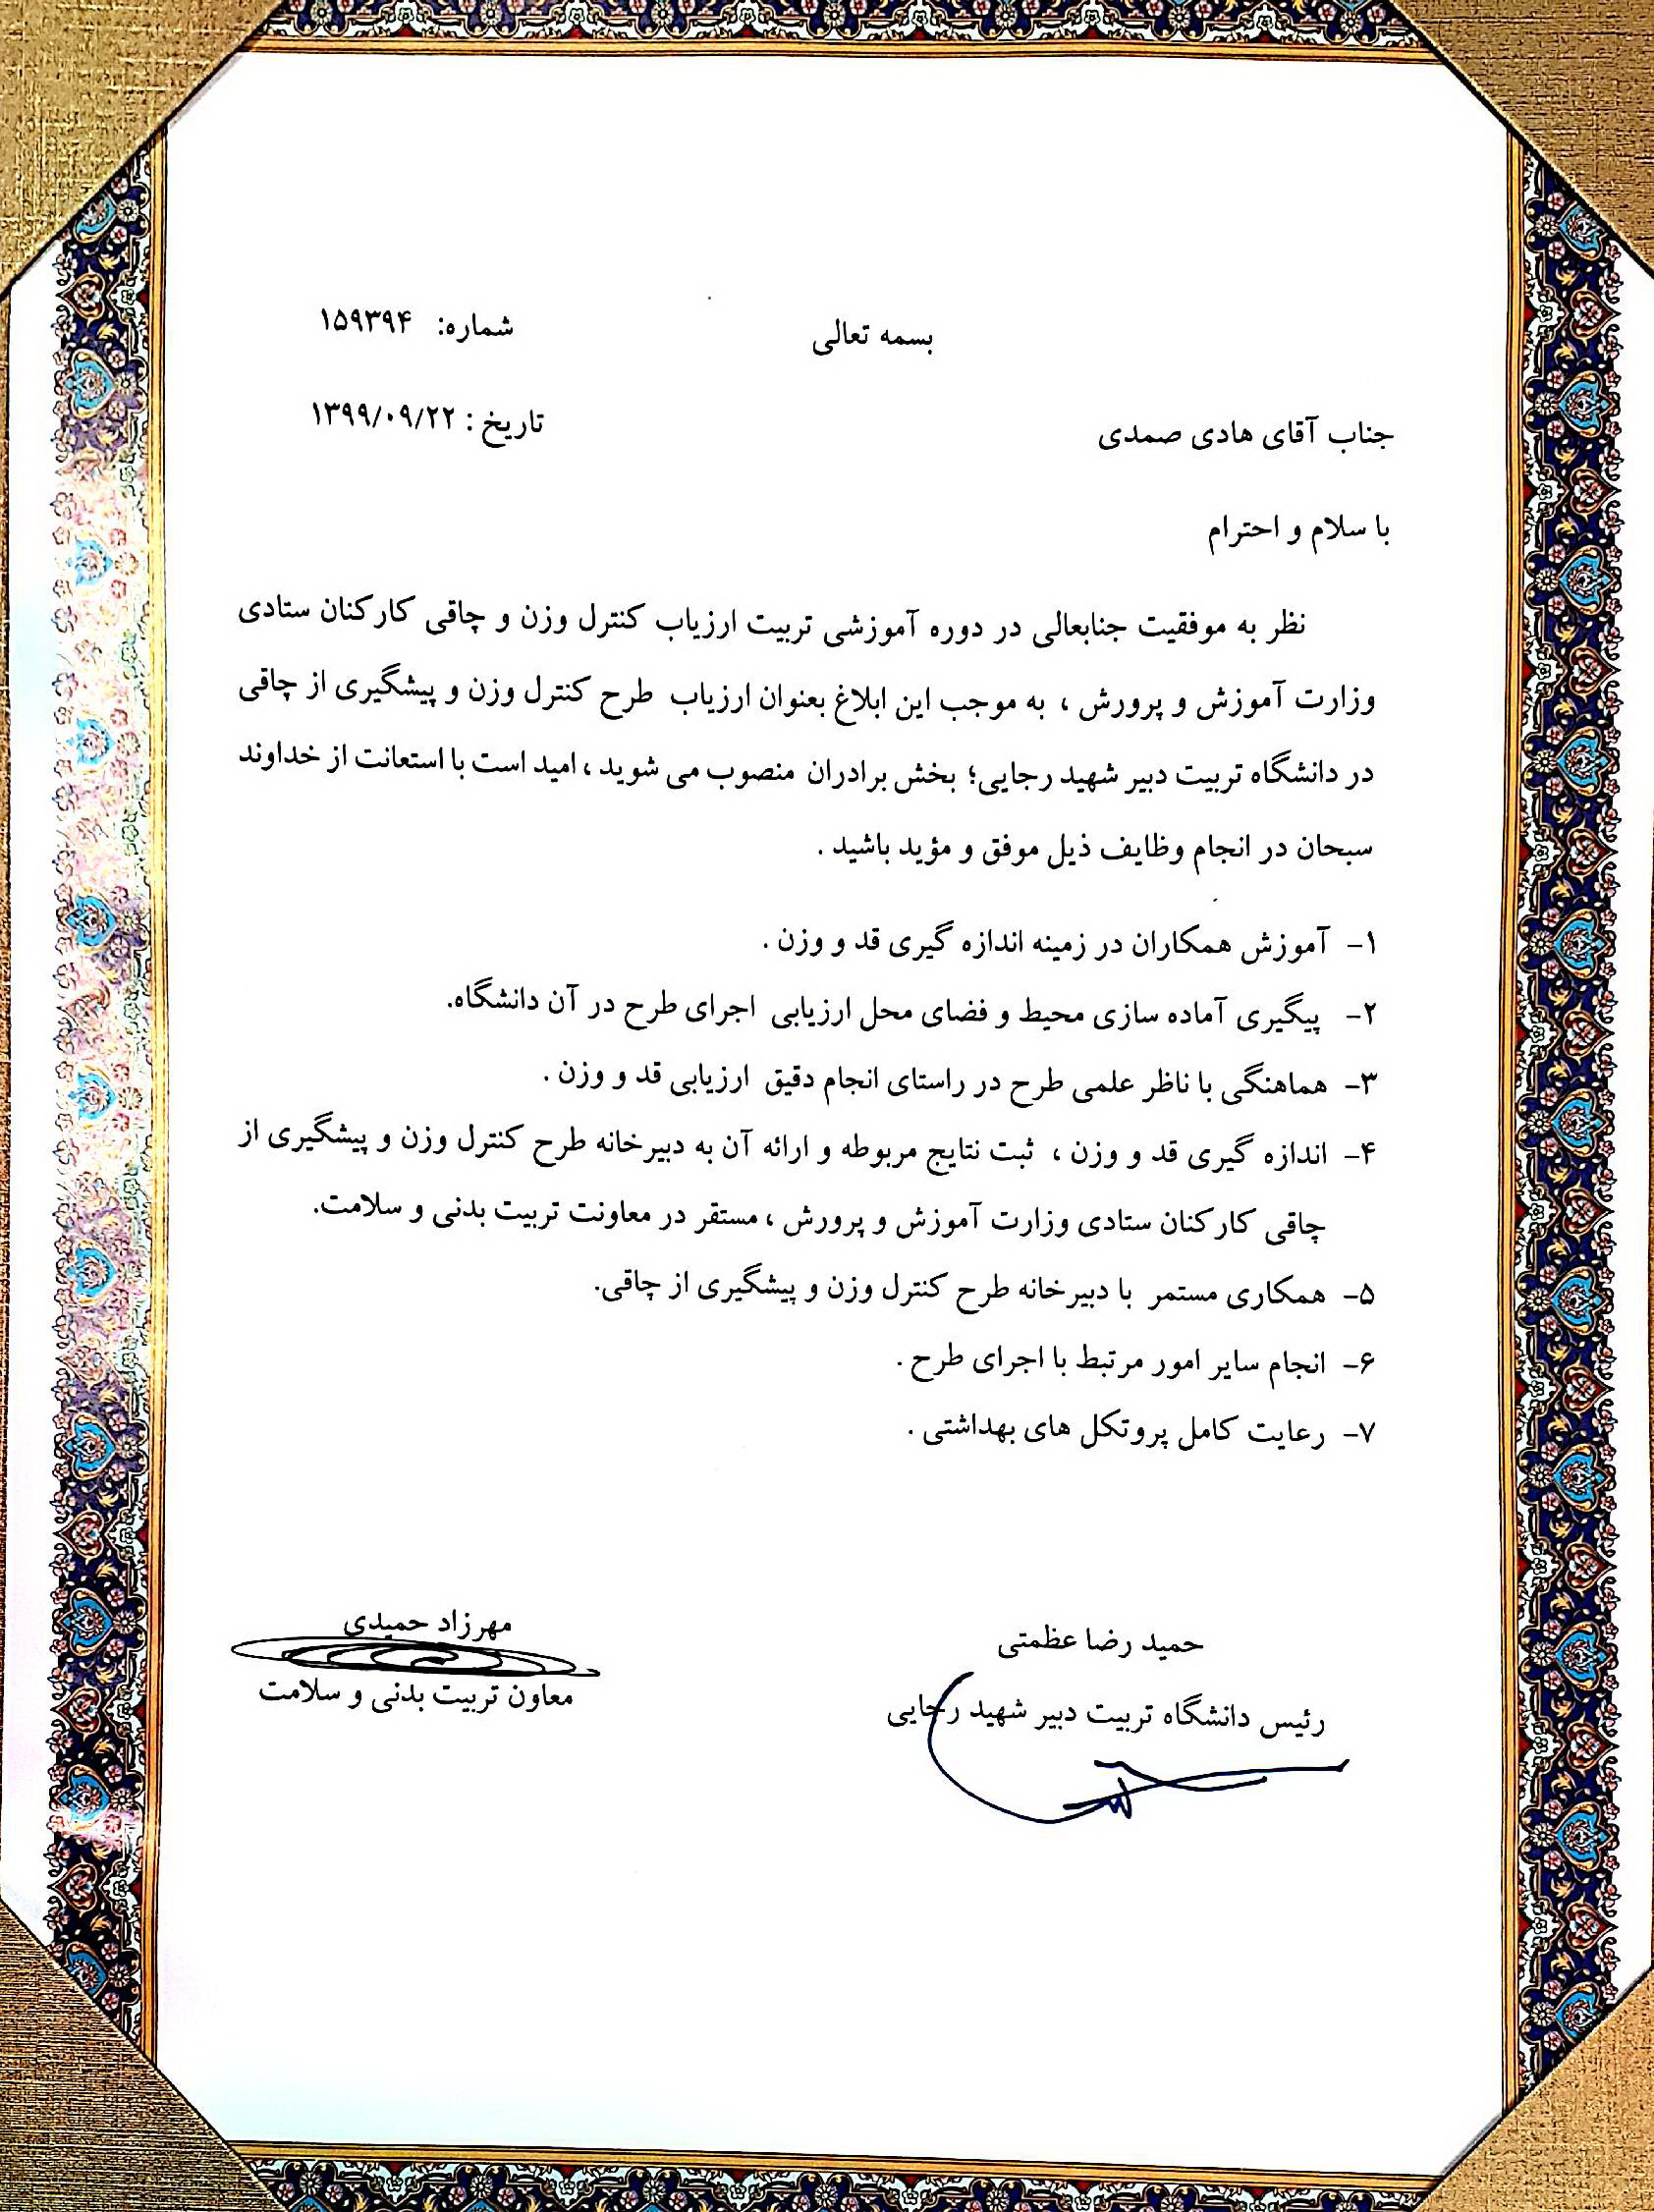 بسمه تعالی
شماره: ۱۵۹۳۹۴
تاریخ : ۱۳۹۹/۰۹/۲۲
جناب آقای هادی صمدی
با سلام و احترام
نظر به موفقیت جنابعالی در دوره آموزشی تربیت ارزیاب کنترل وزن و چاقی کارکنان ستادی
وزارت آموزش و پرورش ، به موجب این ابلاغ بعنوان ارزیاب طرح کنترل وزن و پیشگیری از چاقی
در دانشگاه تربیت دبیر شهید رجایی؛ بخش برادران منصوب می شوید ، امید است با استعانت از خداوند
سبحان در انجام وظایف ذیل موفق و مؤید باشید .
۱- آموزش همکاران در زمینه اندازه گیری قد و وزن .
۲- پیگیری آماده سازی محیط و فضای محل ارزیابی اجرای طرح در آن دانشگاه.
۳- هماهنگی با ناظر علمی طرح در راستای انجام دقیق ارزیابی قد و وزن .
۴- اندازه گیری قد و وزن ، ثبت نتایج مربوطه و ارائه آن به دبیرخانه طرح کنترل وزن و پیشگیری از
چاقی کارکنان ستادی وزارت آموزش و پرورش ، مستقر در معاونت تربیت بدنی و سلامت.
۵- همکاری مستمر با دبیرخانه طرح کنترل وزن و پیشگیری از چاقی.
۶- انجام سایر امور مرتبط با اجرای طرح .
۷- رعایت کامل پروتکل های بهداشتی .
حمید رضا عظمتی
رئیس دانشگاه تربیت دبیر شهید رجایی
مهرزاد حمیدی
معاون تربیت بدنی و سلامت